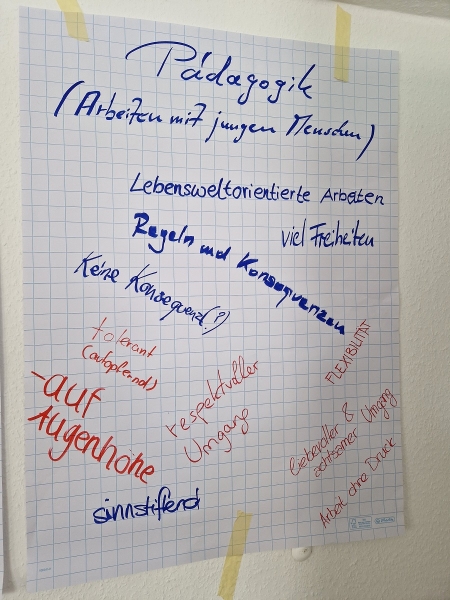 Pädagogik
(Arbeiten mit jungen Menschen)
Lebensweltorientierte Arbeiten
viel Freiheiten
Regeln und Konsequenzen
Keine Konsequenz(?)
tolerant
(autopfernd)
FLEXIBILITÄT
- auf
Augenhöhe
respektvoller
Umgang
liebevoller &
achtsamer Umgang
Arbeit ohne Druck
sinnstiftend